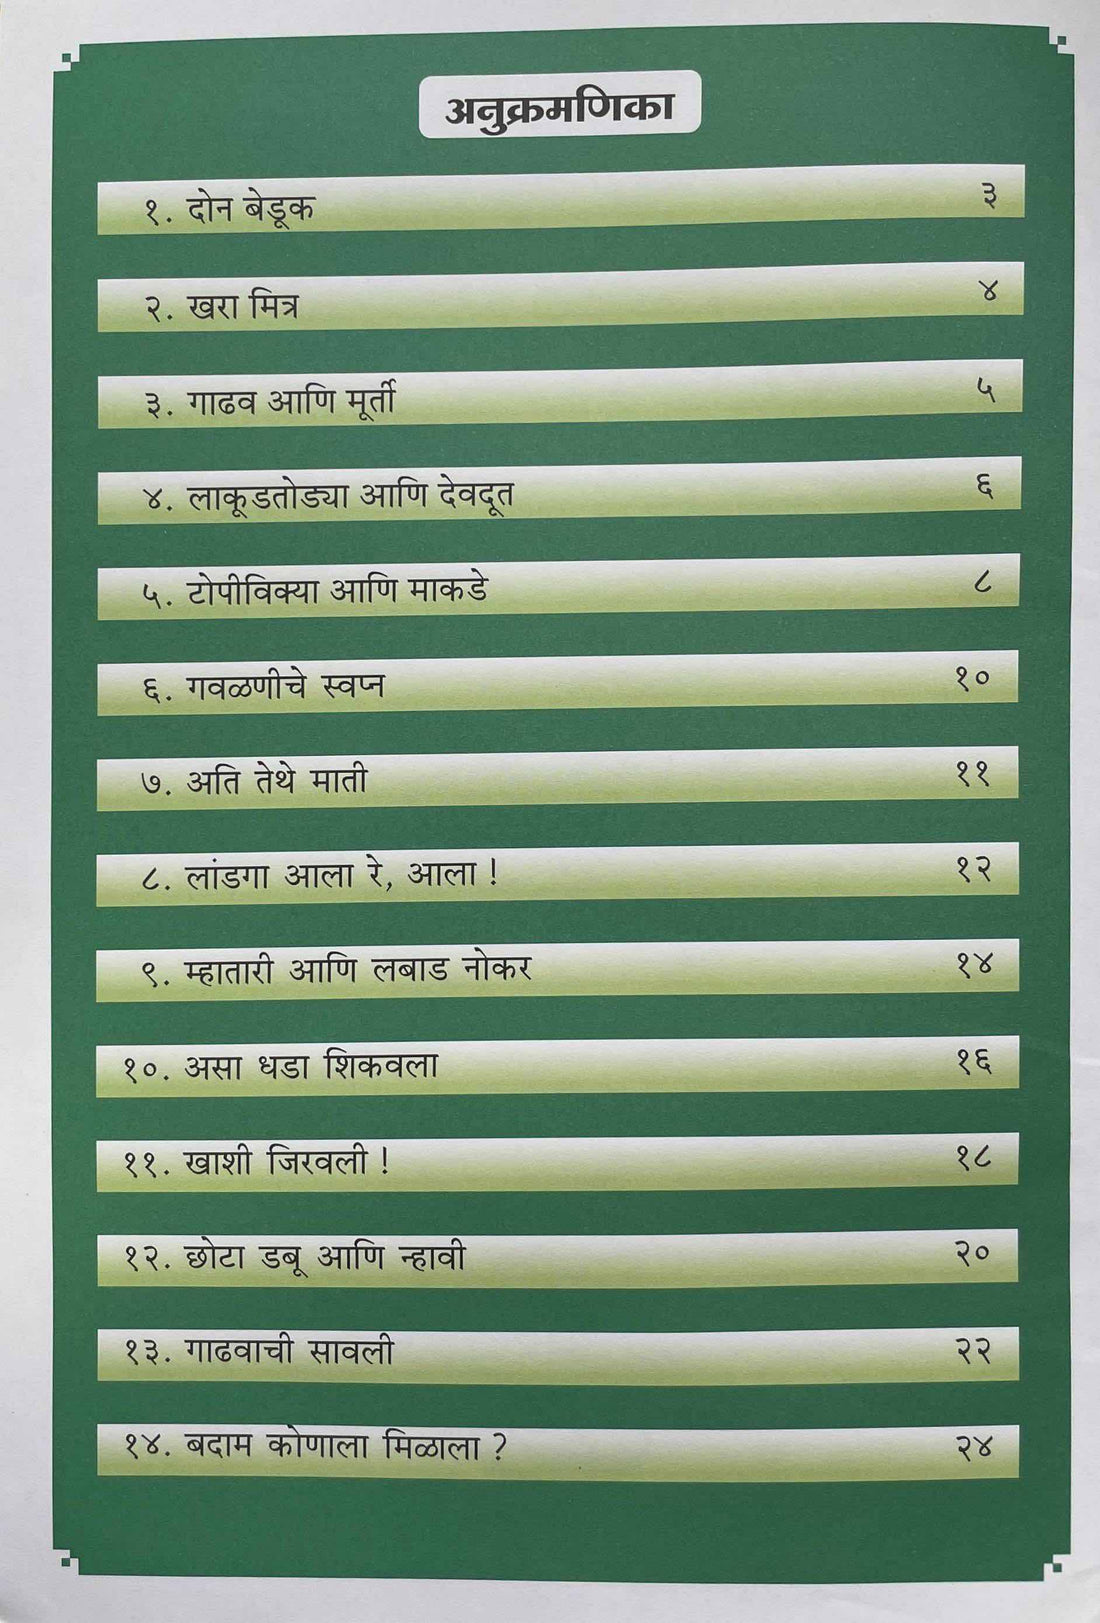 अनुक्रमणिका
१. दोन बेडूक ३
२. खरा मित्र ४
३. गाढव आणि मूर्ती ५
४. लाकूडतोड्या आणि देवदूत ६
५. टोपीविक्या आणि माकडे ८
६. गवळणीचे स्वप्न १०
७. अति तेथे माती ११
८. लांडगा आला रे, आला ! १२
९. म्हातारी आणि लबाड नोकर १४
१०. असा धडा शिकवला १६
११. खाशी जिरवली ! १८
१२. छोटा डबू आणि न्हावी २०
१३. गाढवाची सावली २२
१४. बदाम कोणाला मिळाला ? २४